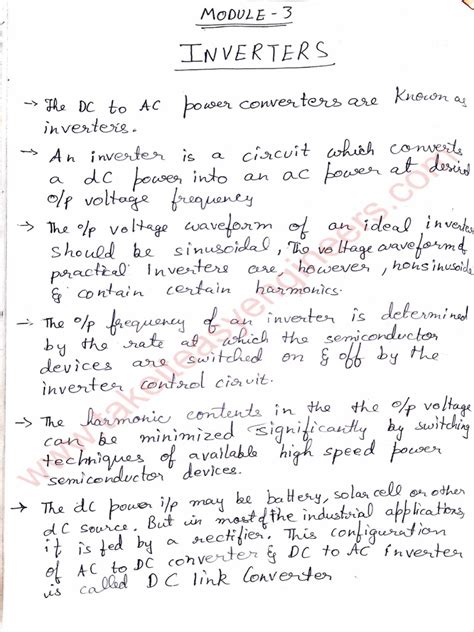 MODULE - 3
INVERTERS
→ The DC to AC power converters are Known as
inverters.
→ An inverter is a circuit which converts
a dc power into an ac power at desired
o/p voltage frequency
→ The o/p voltage waveform of an ideal inverter
should be sinusoidal, The voltage waveform of
practical Inverters are, however, nonsinusoidal
& contain certain harmonics.
→ The o/p frequency of an inverter is determined
by the rate at which the semiconductor
devices are switched on & off by the
inverter control ciruit.
→ The harmonic contents in the the o/p voltage
can be minimized significantly by switching
techniques of available high speed power
semiconductor devices.
→ The dc power i/p may be battery, solar cell or other
dC source. But in most of the industrial applications,
it is fed by a rectifier. This configuration
of AC to DC converter & DC to AC inverter
is called DC link Converter
www.takeiteasyengineers.com